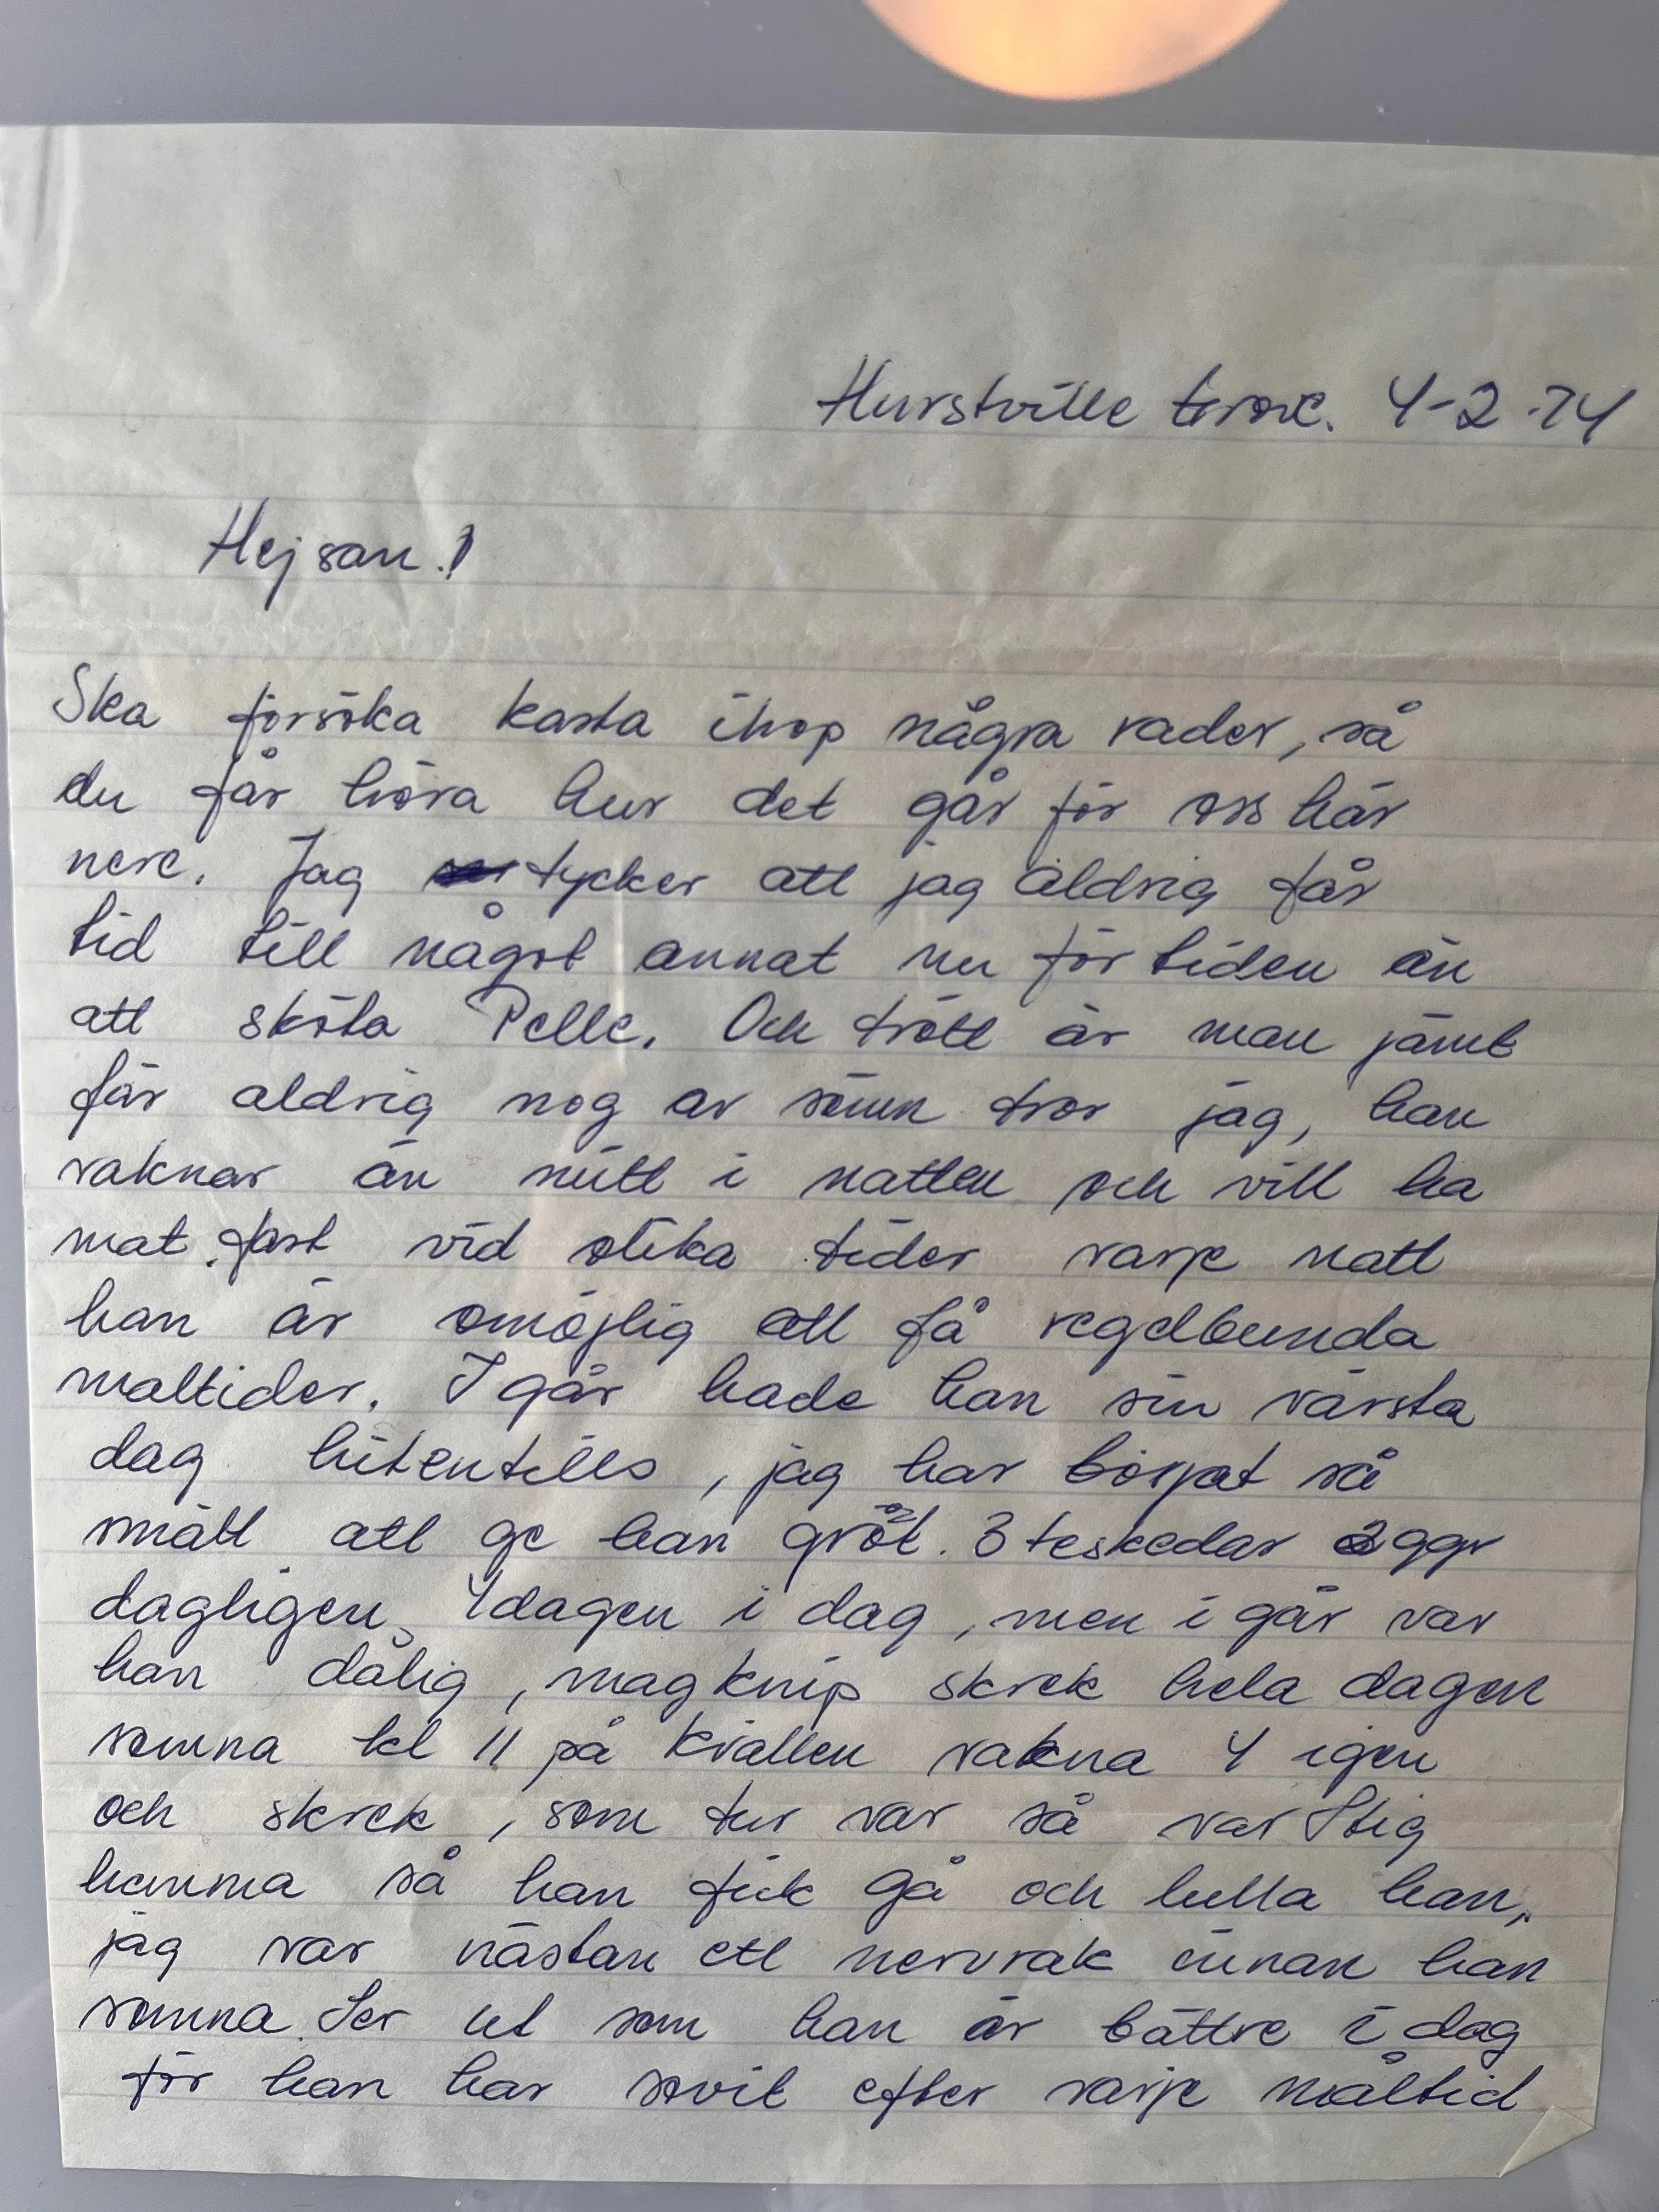 Hurstville 4-2-74
Hejsan!
Ska försöka kasta ihop några rader, så
du får höra hur det går för oss här
nere. Jag tycker att jag aldrig får
tid till något annat nu för tiden än
att sköta Pelle. Och trött är man jämt
får aldrig nog av sömn tror jag, han
vaknar än mitt i natten och vill ha
mat, fast vid olika tider varje natt
han är omöjlig att få regelbunda
måltider. I går hade han sin värsta
dag hitentills, jag har börjat så
smått att ge han gröt. 3 teskedar 2 ggr
dagligen, 4dagen i dag, men i går var
han dålig, magknip skrek hela dagen
somna kl 11 på kvällen vakna 4 igen
och skrek, som tur var så var Stig
hemma så han fick gå och lulla han,
jag var nästan ett nervvrak innan han
somna. Ser ut som han är bättre i dag
för han har sovit efter varje måltid